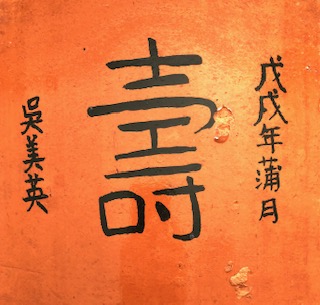 戊戌年蒲月
壽
吳美英